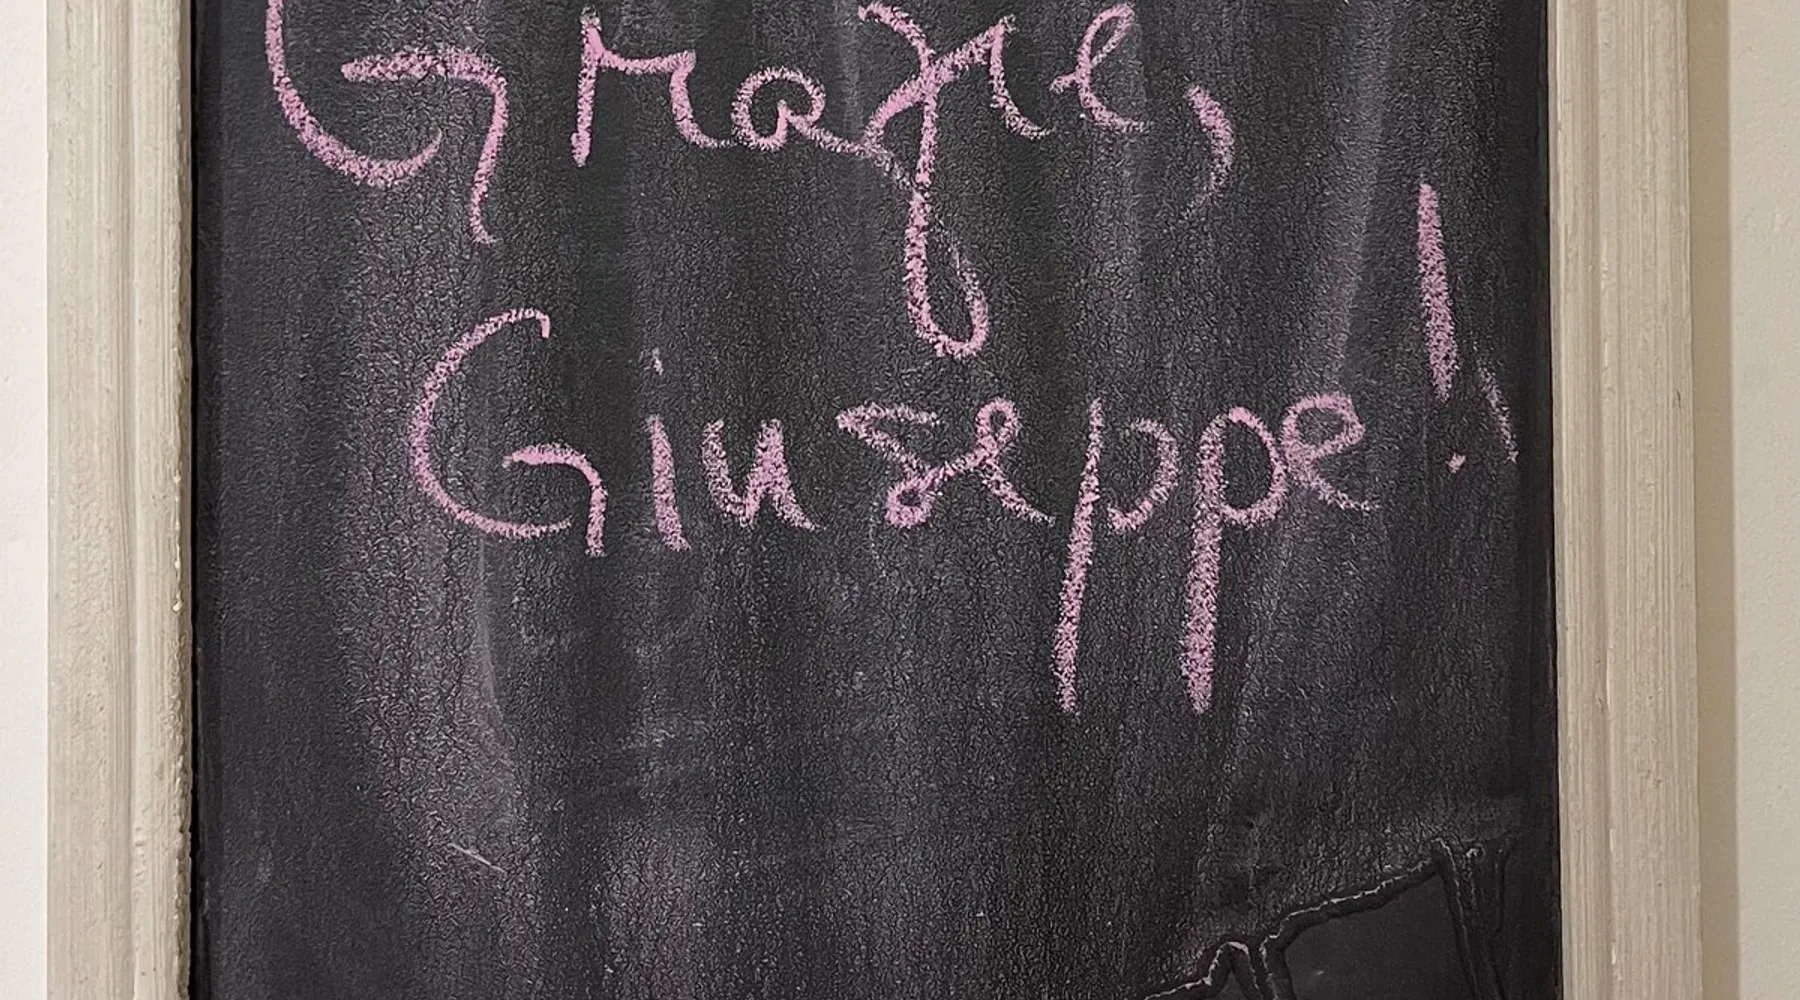 Grazie,
Giuseppe!